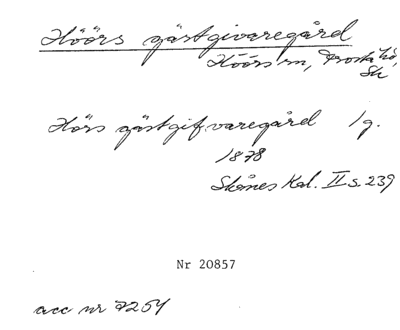 Höörs gästgivaregård
Höörs sn, Frosta hd,
Sk
Hörs gästgifvaregård 1 g.
1878
Skånes Kal. II s. 239
Nr 20857
acc nr 7254